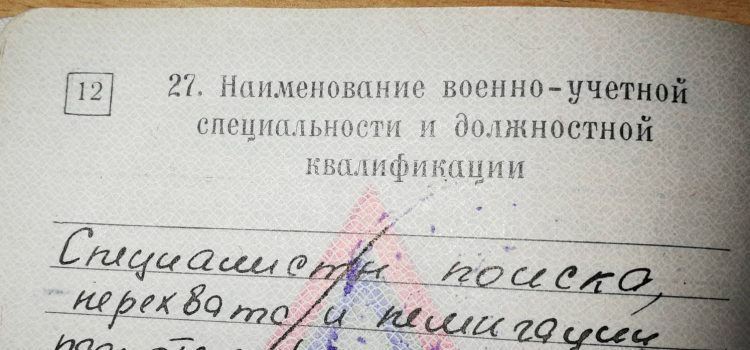 12
27. Наименование военно-учетной
специальности и должностной
квалификации
Специалисты поиска,
перехвата и пелингации